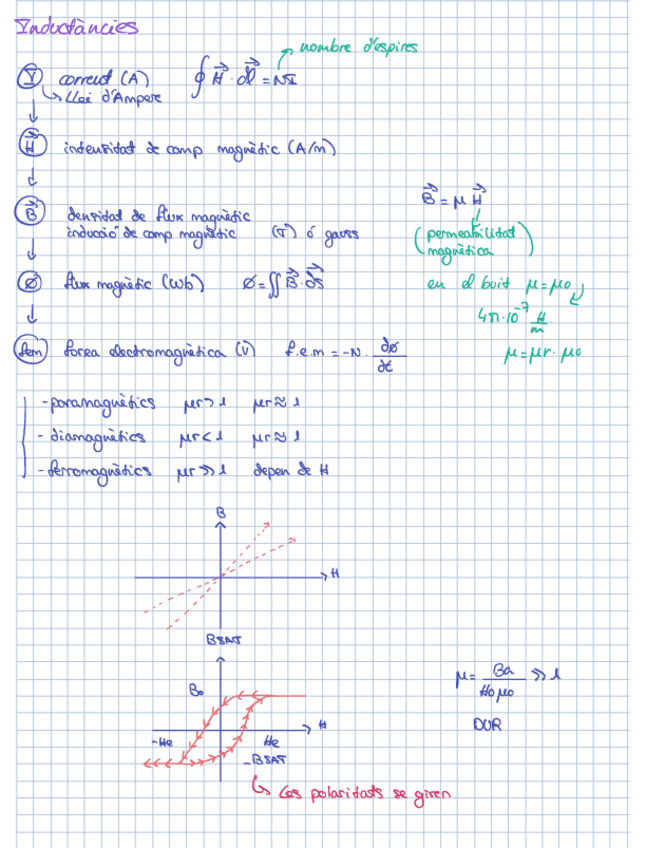 Inductàncies
nombre d'espires
I corrent (A) ∮ H⃗ · dl⃗ = NI
↳ Llei d'Ampere
H⃗ intensitat de camp magnètic (A/m)
B⃗ = μ H⃗
B⃗ densitat de flux magnètic
inducció de camp magnètic (T) ó gauss
(permeabilitat magnètica)
Ø flux magnètic (Wb) Ø = ∬ B⃗ · ds⃗
en el buit μ = μo
4π·10⁻⁷ H/m
fem força electromagnètica (V) f.e.m = -N · dø/dt
μ = μr · μo
- paramagnètics μr > 1 μr ≈ 1
- diamagnètics μr < 1 μr ≈ 1
- ferromagnètics μr >> 1 depen de H
B
H
BSAT
Bo
H
-Hc Hc
-BSAT
↳ Les polaritats se giren
μ = Ba / Ho μo >> 1
DUR